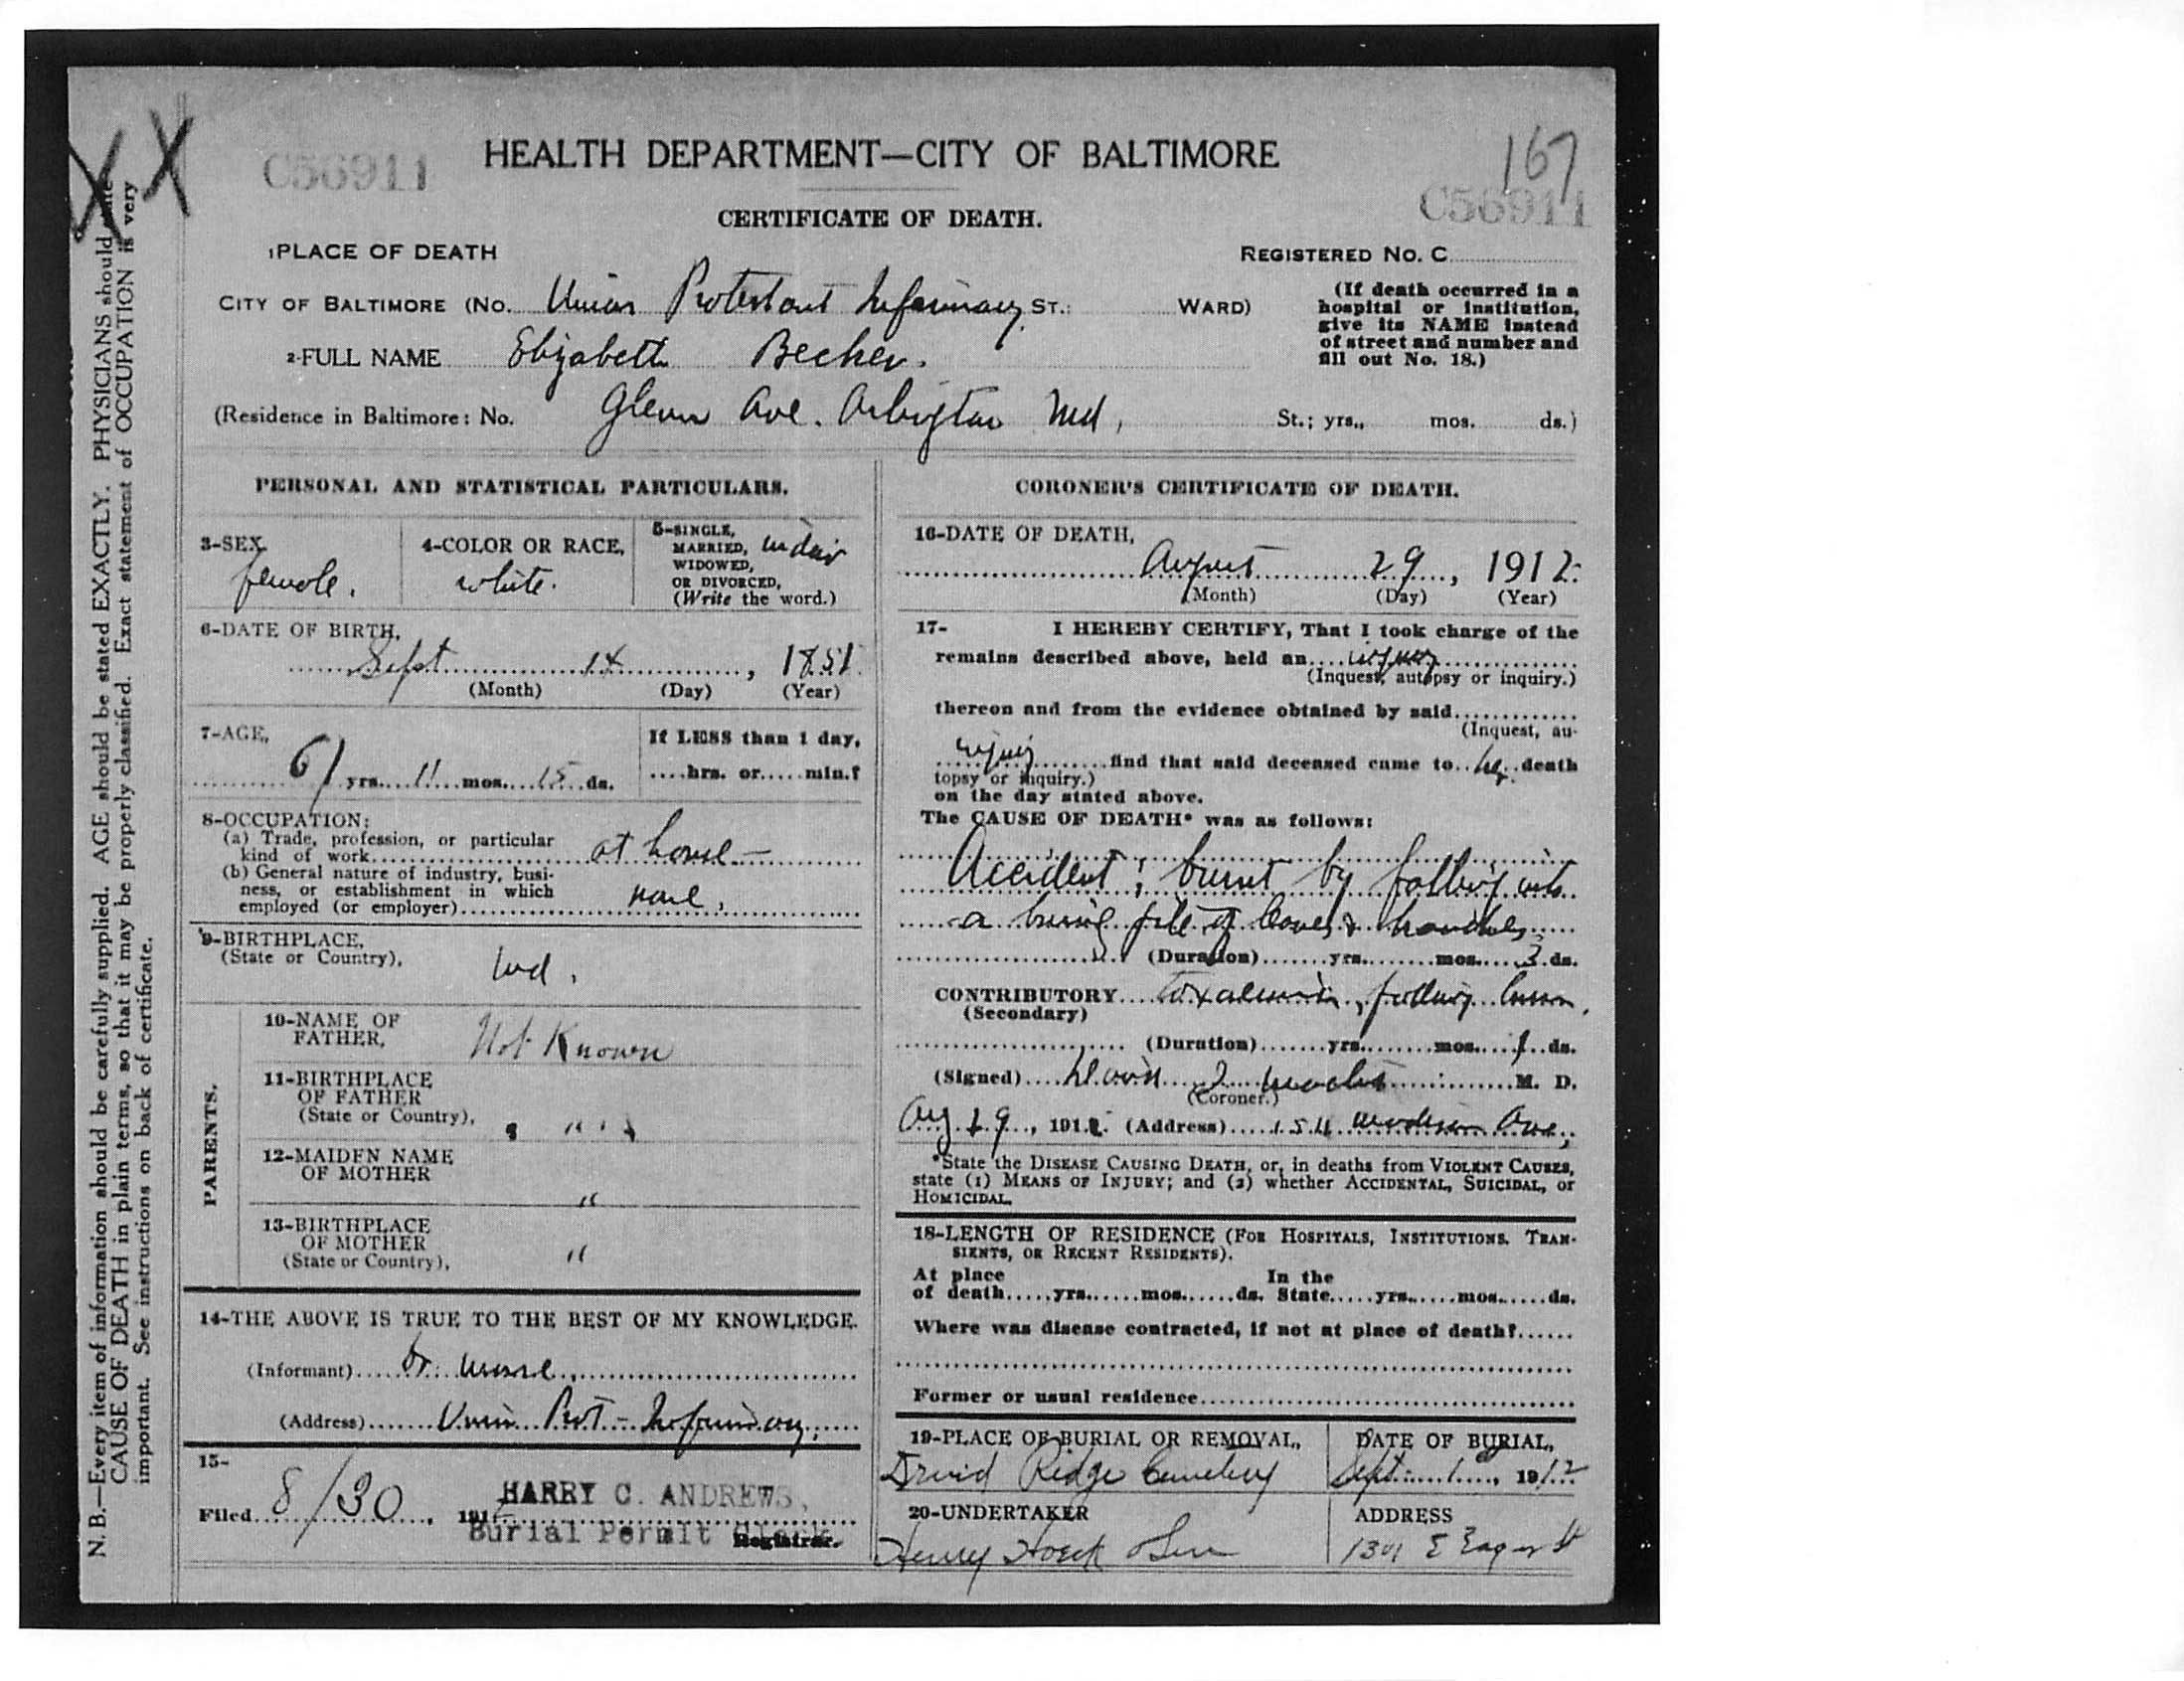 167
C56911
HEALTH DEPARTMENT—CITY OF BALTIMORE
C56911
CERTIFICATE OF DEATH.
1PLACE OF DEATH
REGISTERED No. C
CITY OF BALTIMORE (No. Union Protestant Infirmary ST.: WARD)
(If death occurred in a
hospital or institution,
give its NAME instead
of street and number and
fill out No. 18.)
2-FULL NAME Elizabeth Becker.
(Residence in Baltimore: No. Glenn Ave. Arlington Md, St.; yrs., mos. ds.)
PERSONAL AND STATISTICAL PARTICULARS.
3-SEX,
female.
4-COLOR OR RACE,
white.
5-SINGLE,
MARRIED,
WIDOWED,
OR DIVORCED,
(Write the word.)
6-DATE OF BIRTH,
Sept 14, 1851
(Month) (Day) (Year)
7-AGE,
61 yrs. 11 mos. 15 ds.
If LESS than 1 day,
hrs. or min.?
8-OCCUPATION:
(a) Trade, profession, or particular
kind of work at home
(b) General nature of industry, busi-
ness, or establishment in which
employed (or employer) none,
9-BIRTHPLACE,
(State or Country), Md.
PARENTS.
10-NAME OF
FATHER, Not Known
11-BIRTHPLACE
OF FATHER
(State or Country), " "
12-MAIDEN NAME
OF MOTHER "
13-BIRTHPLACE
OF MOTHER
(State or Country), "
14-THE ABOVE IS TRUE TO THE BEST OF MY KNOWLEDGE.
(Informant) Dr.
(Address) Union Prot- Infirmary,
15-
Filed 8/30, 191
HARRY C. ANDREWS,
Burial Permit Clerk
Registrar.
CORONER'S CERTIFICATE OF DEATH.
16-DATE OF DEATH,
August 29, 1912.
(Month) (Day) (Year)
17- I HEREBY CERTIFY, That I took charge of the
remains described above, held an inquiry
(Inquest, autopsy or inquiry.)
thereon and from the evidence obtained by said
(Inquest, au-
inquiry find that said deceased came to her death
topsy or inquiry.)
on the day stated above.
The CAUSE OF DEATH* was as follows:
Accident; burnt by falling into
a burning pile of leaves & branches
(Duration) yrs. mos. 3 ds.
CONTRIBUTORY toxaemia, following burn.
(Secondary)
(Duration) yrs. mos. 1 ds.
(Signed) M. D.
(Coroner.)
Aug 29, 1912. (Address) Madison Ave,
*State the DISEASE CAUSING DEATH, or, in deaths from VIOLENT CAUSES,
state (1) MEANS OF INJURY; and (2) whether ACCIDENTAL, SUICIDAL, or
HOMICIDAL.
18-LENGTH OF RESIDENCE (FOR HOSPITALS, INSTITUTIONS. TRAN-
SIENTS, OR RECENT RESIDENTS).
At place In the
of death yrs. mos. ds. State yrs. mos. ds.
Where was disease contracted, if not at place of death?
Former or usual residence
19-PLACE OF BURIAL OR REMOVAL,
Druid Ridge Cemetery
DATE OF BURIAL,
Sept. 1, 1912
20-UNDERTAKER
Henry Hoeck
ADDRESS
1301 E Eager St
N. B.—Every item of information should be carefully supplied. AGE should be stated EXACTLY. PHYSICIANS should
CAUSE OF DEATH in plain terms, so that it may be properly classified. Exact statement of OCCUPATION is very
important. See instructions on back of certificate.